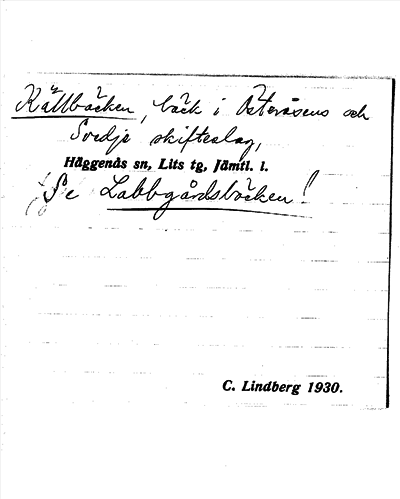 Källbäcken, bäck i Österåsens och
Svedje skifteslag,
Häggenås sn, Lits tg, Jämtl. l.
Se Labbgårdsbäcken!
C. Lindberg 1930.